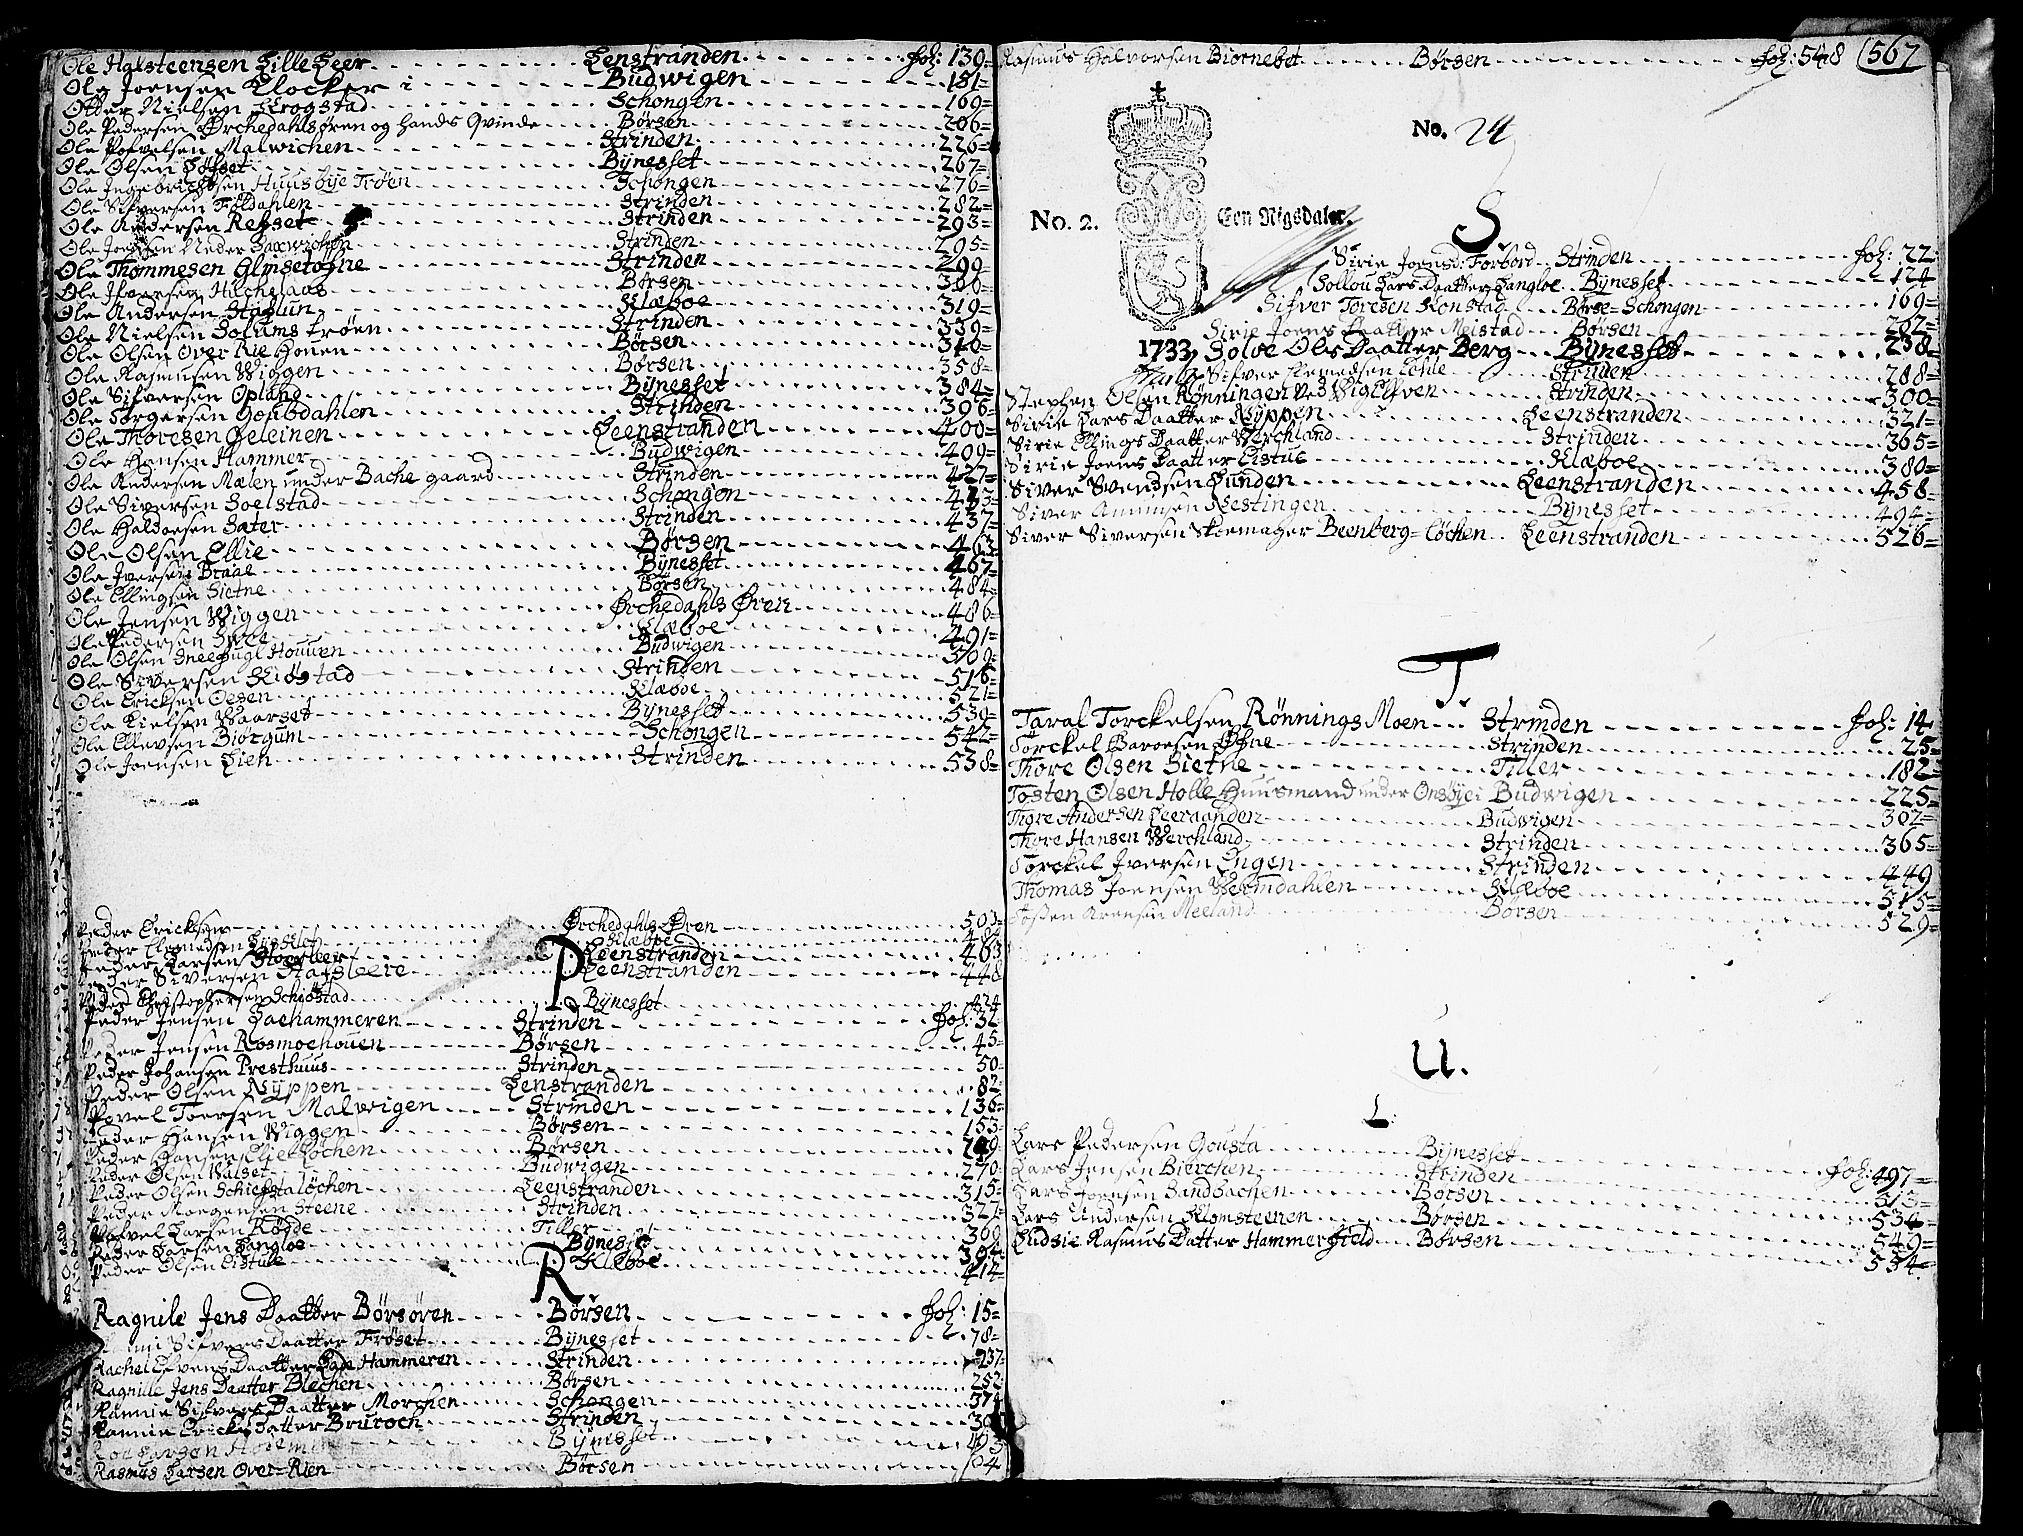 Ole Halsteensen Lille Leer Leenstranden fol: 139=
Ole Joensen Klocker i Budwigen 151=
Otter Nielsen Krogstad Schongen 169=
Ole Pedersen Ørchedahlsøren og hands Qvinde Børsen 206=
Ole Povelsen Malwichen Strinden 226=
Ole Olsen Bynesset 267=
Ole Ingebrichtsen Huusbye Trøen Schongen 276=
Ole Sifversen Tilldahlen Strinden 282=
Ole Andersen Refset Strinden 293=
Ole Joensen Neder Saxwichen Strinden 295=
Ole Thommesen Strinden 299=
Ole Ifversen Børsen 300=
Ole Andersen Klæboe 319=
Ole Nielsen Solums trøen Strinden 339=
Ole Olsen Over Rie Børsen 340=
Ole Rasmusen Wiggen Børsen 358=
Ole Sifversen Opland Bynesset 384=
Ole Torgersen Goubdahlen Strinden 396=
Ole Thoresen Geleinen Leenstranden 400=
Ole Hansen Hammer Budwigen 409=
Ole Andersen Mælen under Bache gaard Strinden 427=
Ole Siversen Soelstad Schongen
Ole Haldorsen Sæter Strinden 437=
Ole Olsen Ellie Børsen 463
Ole Iversen Braae Bynesset 467=
Ole Ellingsen Sietne Børsen 484=
Ole Jensen Wiggen Ørchedahls Øren 486=
Ole Pedersen Klæboe 491=
Ole Olsen Houven Budwigen 509=
Ole Siversen Kiøstad Strinden 516=
Ole Ericksen Klæboe 521=
Ole Nielsen Waarset Bynesset 539=
Ole Ellevsen Biørgum Schongen 542=
Ole Joensen Lien Strinden 558=
P.
Peder Ericksen Ørchedahls Øren 503=
Peder Klæboe
Peder Larsen Leenstranden 463
Peder Siversen Leenstranden 448
Peder Christophersen Schiøstad Bynesset 424
Peder Jensen Ladehammeren Strinden fol: 34=
Peder Jensen Rosmoehouen Børsen 45=
Peder Johansen Presthuus Strinden 50=
Peder Olsen Nyppen Leenstranden 82=
Povel Toersen Malwigen Strinden 136=
Peder Hansen Wiggen Børsen 153=
Peder Hansen Børsen
Peder Olsen Walset Budwigen 270=
Peder Olsen Leenstranden 315=
Peder Morgensen Steene Strinden 327=
Povel Larsen Røsde Tiller 360
Peder Larsen Langloe Bynesset 394
Peder Olsen Eistue Klæboe 414=
R
Ragnile Jens Daatter Børsøren Børsen fol: 15=
Sifvers Daatter Frøset Bynesset 78=
Rachel Daatter Lade Hammeren Strinden 237=
Ragnile Jens Daatter Blechen Børsen 252
Rannie Sifvers Daatter Morchen Schongen 374
Rannie Ericks Datter Bruroch Strinden
Larsen Bynesset
Rasmus Larsen Over=Rien Børsen
Rasmus Halvorsen Biørnebet Børsen fol: 548
567
No. 24
No. 2. Een Rigsdaler.
1733
S
Sirie Joensd: Forbord Strinden fol: 22
Sollou Lars Daatter Langloe Bynesset 124
Sifver Toresen Konstad Børse=Schongen 169=
Sirie Joens Daatter Melstad Børsen 202=
Solve Ols Daatter Berg Bynesset 238=
Sifver Strinden 288=
Stephen Olsen Rønningen ved Strinden 300=
Sirie Lars Daatter Nyppen Leenstranden 321=
Sirie Ellings Daatter Werchland Strinden 365=
Sirie Joens Daatter Eistue Klæboe 380=
Siver Svendsen Sunden Leenstranden 458=
Siver Nestingen Bynesset 494=
Siver Siversen Skoemager Leenstranden 526=
T.
Taral Torckelsen Rønnings Moen Strinden fol: 14
Torckel Strinden 25=
Thore Olsen Sietne Tiller 182=
Tosten Olsen Holle Huusmand under Onsøyei Budwigen 225=
Thore Andersen Leeraanden Budwigen 302=
Thore Hansen Werchland Strinden 365=
Torckel Iversen Engen Strinden 449
Thomas Joensen Wermdahlen Klæboe 515=
Arensen Meeland Børsen 529=
U.
L:
Lars Pedersen Gousta Bynesset fol: 497=
Lars Jensen Bierchen Strinden 513=
Lars Joensen Sandbachen Børsen 534=
Lars Andersen Klomsteenen Børsen 549=
Ludsie Rasmus Datter Hammerfield Børsen 554=